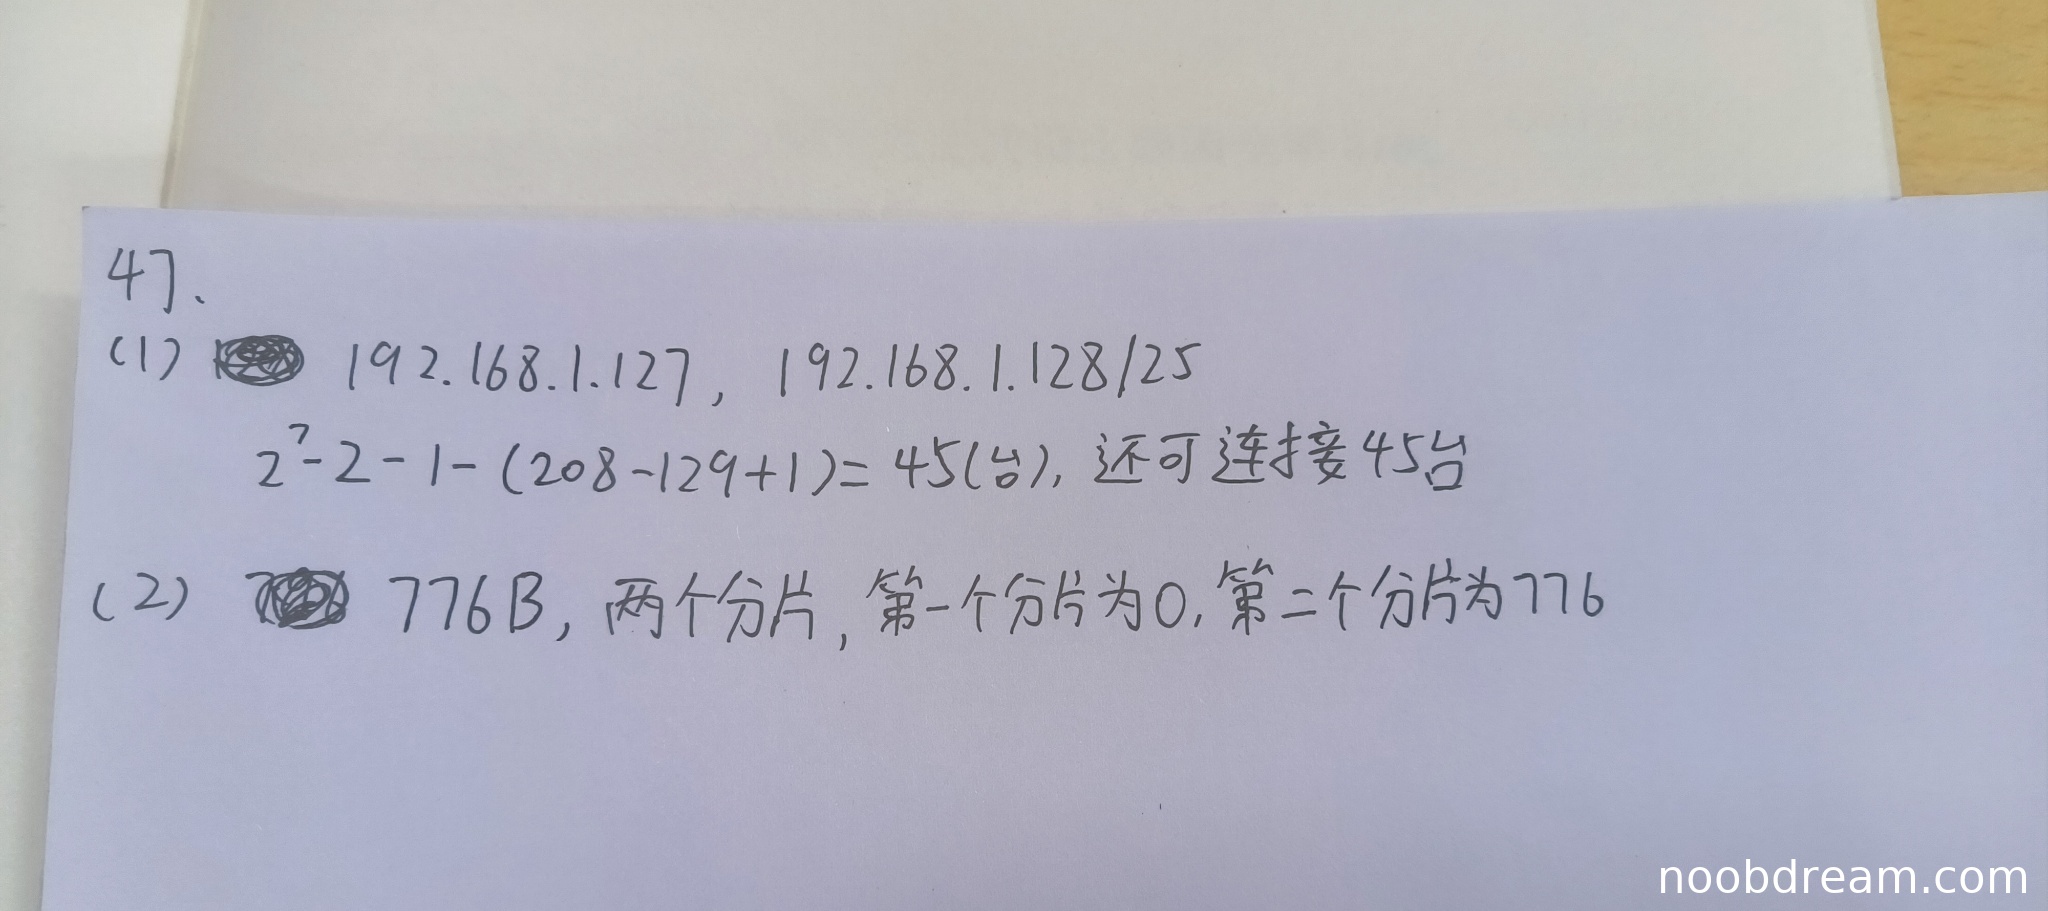 47、
(1) 192.168.1.127, 192.168.1.128/25
2⁷-2-1-(208-129+1)=45(台), 还可连接45台
(2) 776B, 两个分片, 第一个分片为0, 第二个分片为776
noobdream.com